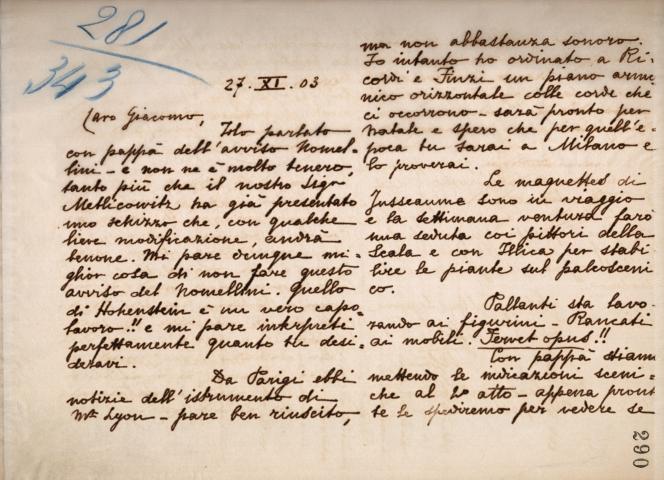 281
343
27. XI. 03
Caro Giacomo,
Ho parlato
con pappà dell'avviso Nomel=
lini - e non ne è molto tenero,
tanto più che il nostro Sigr
Metlicowitz ha già presentato
uno schizzo che, con qualche
lieve modificazione, andrà
benone. Mi pare dunque mi=
glior cosa di non fare questo
avviso del Nomellini. Quello
di Hohenstein è un vero capo=
lavoro!! e mi pare interpreti
perfettamente quanto tu desi=
deravi.
Da Parigi ebbi
notizie dell'istrumento di
Mr Lyon - pare ben riuscito,
ma non abbastanza sonoro.
Io intanto ho ordinato a Ri=
cordi e Finzi un piano armo
nico orizzontale colle corde che
ci occorrono - sarà pronto per
Natale e spero che per quell'e=
poca tu sarai a Milano e
lo proverai.
Le maquettes di
Jusseaume sono in viaggio
e la settimana ventura farò
una seduta coi pittori della
Scala e con Illica per stabi
lire le piante sul palcosceni
co.
Paltanti sta lavo
rando ai figurini - Rancati
ai mobili. Fervet opus!!
Con pappà stiam
mettendo le indicazioni sceni=
che al 2o atto - appena pront
te le spediremo per vedere se
290